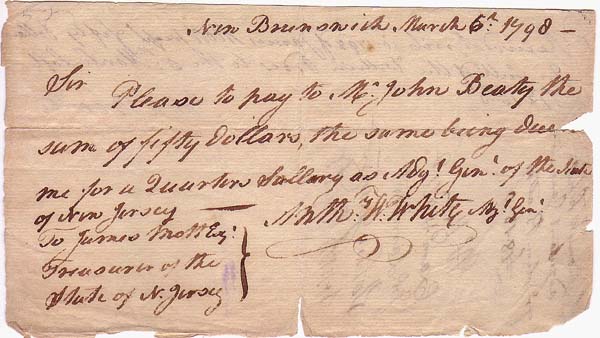 New Brunswick, March 6th. 1798 —
Sir
Please to pay to Mr. John Beaty the
sum of fifty dollars, the same being due
me for a Quarters Sallery as Adjt. Genl. of the State
of New Jersey —
Anth. W. White Ajt. Genl.
To James Mott Esqr.
Treasurer of the
State of N. Jersey